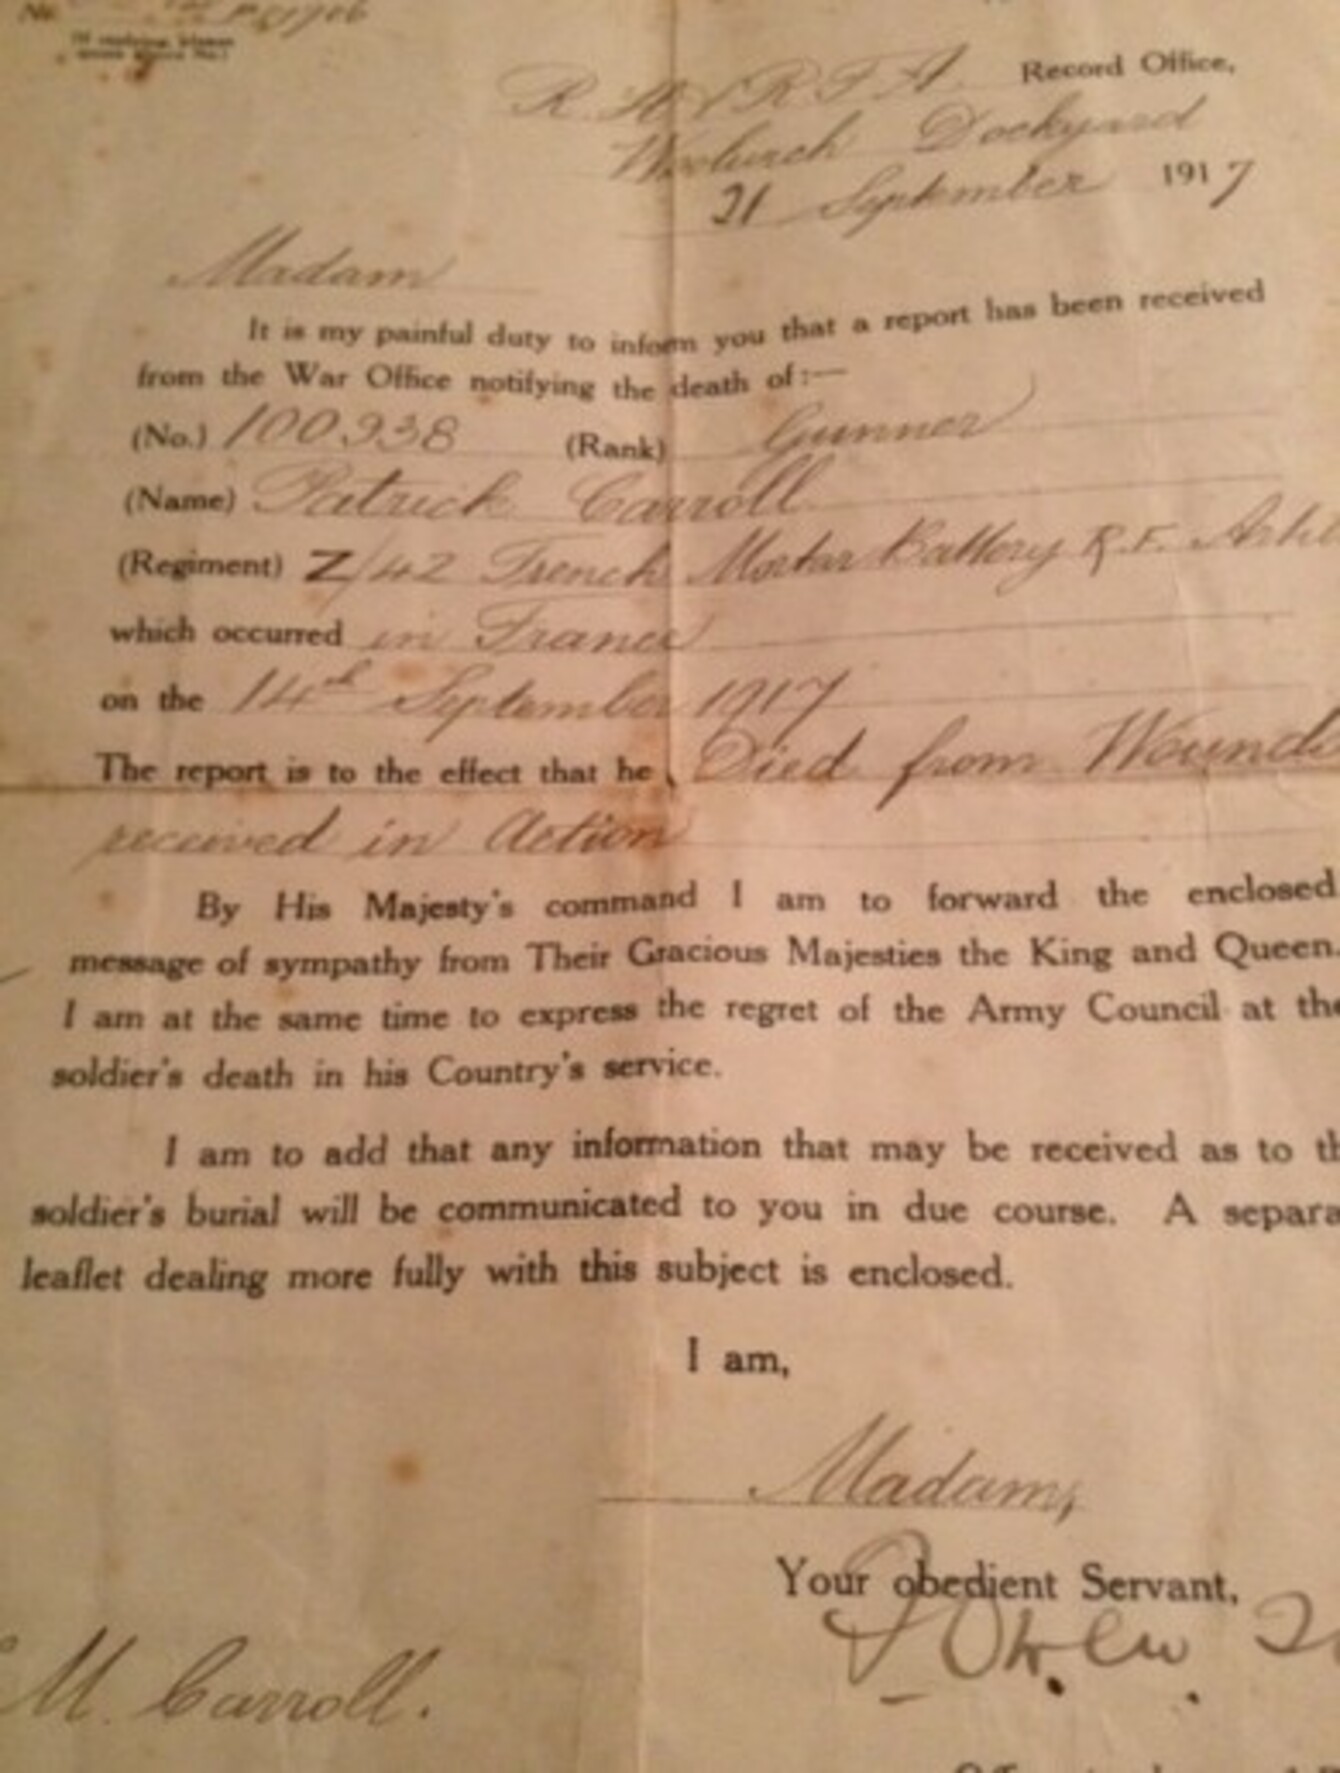 No.
(If replying, please
quote above No.)
R.H. & R.F.A. Record Office,
Woolwich Dockyard
21 September 1917
Madam
It is my painful duty to inform you that a report has been received
from the War Office notifying the death of:—
(No.) 100938 (Rank) Gunner
(Name) Patrick Carroll
(Regiment) Z/42 Trench Mortar Battery R.F.
which occurred in France
on the 14th September 1917
The report is to the effect that he Died from Wound
received in Action
By His Majesty's command I am to forward the enclosed
message of sympathy from Their Gracious Majesties the King and Queen.
I am at the same time to express the regret of the Army Council at the
soldier's death in his Country's service.
I am to add that any information that may be received as to th
soldier's burial will be communicated to you in due course. A separa
leaflet dealing more fully with this subject is enclosed.
I am,
Madam,
Your obedient Servant,
M. Carroll.